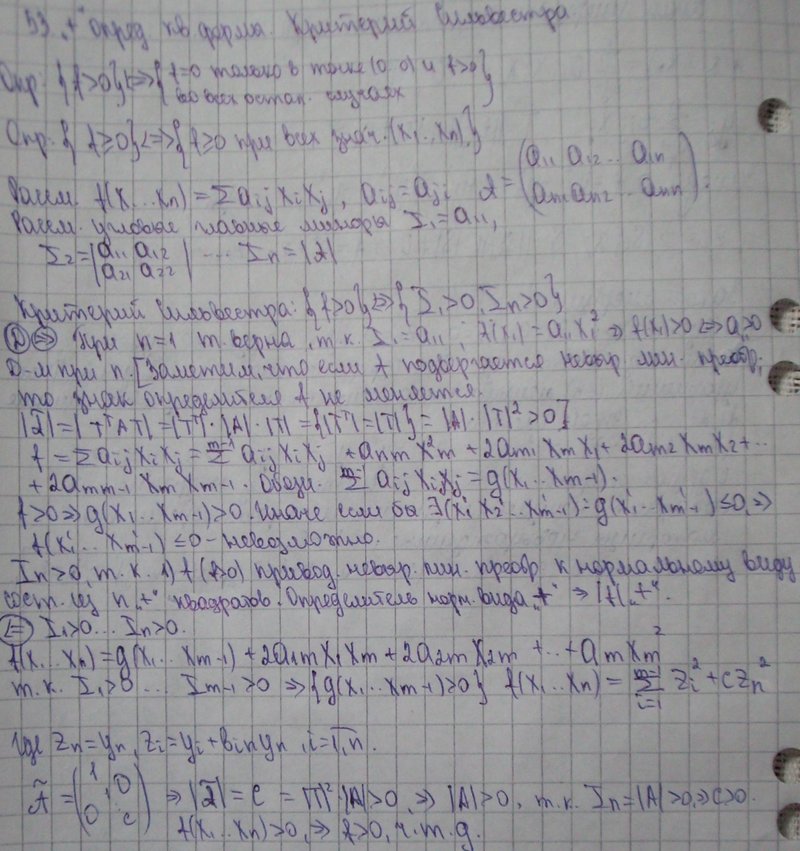 53 „+“ опред кв форма. Критерий Сильвестра
Опр: {f>0}<=>{f=0 только в точке (0 0) и f>0}
во всех остал. случаях
Опр: {f≥0}<=>{f≥0 при всех знач. (x₁...xₙ)}
Рассм. f(x₁...xₙ) = Σaᵢⱼxᵢxⱼ, aᵢⱼ=aⱼᵢ A = (a₁₁ a₁₂ ... a₁ₙ
aₙ₁ aₙ₂ ... aₙₙ).
Рассм. угловые главные миноры I₁=a₁₁,
I₂=|a₁₁ a₁₂ ... Iₙ=|A|
a₂₁ a₂₂|
Критерий Сильвестра: {f>0}<=>{I₁>0, Iₙ>0}
Д => При n=1 т. верна, т.к. I₁=a₁₁; f(x₁)=a₁₁x₁² => f(x₁)>0 <=> a₁₁>0
Д-м при n. [Заметим, что если f подвергается невыр. лин. преобр,
то знак определителя f не меняется.
|Ã|=|TᵀAT|=|Tᵀ|·|A|·|T|={|Tᵀ|=|T|}=|A|·|T|²>0]
f=Σaᵢⱼxᵢxⱼ=Σᵐ⁻¹aᵢⱼxᵢxⱼ+aₘₘx²ₘ+2aₘ₁xₘx₁+2aₘ₂xₘx₂+...
+2aₘₘ₋₁xₘxₘ₋₁. Обозн. Σᵐ⁻¹aᵢⱼxᵢxⱼ=g(x₁...xₘ₋₁).
f>0=>g(x₁...xₘ₋₁)>0. Иначе если бы ∃(x₁' x₂'...x'ₘ₋₁):g(x₁'...x'ₘ₋₁)≤0,=>
f(x₁'...x'ₘ₋₁)≤0 - невозможно.
Iₙ>0, т.к. 1) f(f>0) привод. невыр. лин. преобр к нормальному виду
сост. из n „+“ квадратов. Определитель норм. вида „+“ => |f| „+“.
<= I₁>0...Iₙ>0.
f(x₁...xₙ)=g(x₁...xₘ₋₁)+2a₁ₘx₁xₘ+2a₂ₘx₂ₘ+...+aₘxₘ²
т.к. I₁>0...Iₘ₋₁>0 => {g(x₁...xₘ₋₁)>0} f(x₁...xₙ)=Σᵢ₌₁ᵐ⁻¹zᵢ²+czₙ²
где zₙ=yₙ, zᵢ=yᵢ+bᵢₙyₙ, i=1,n.
Ã=(1 0
0 c) => |Ã|=c=|T|²|A|>0, => |A|>0, т.к. Iₙ=|A|>0,=>c>0.
f(x₁...xₙ)>0, => f>0, ч.т.д.